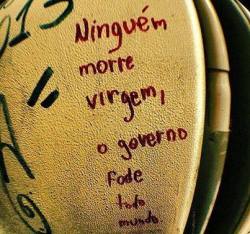 Ninguém
morre
virgem,
o governo
fode
todo
mundo.